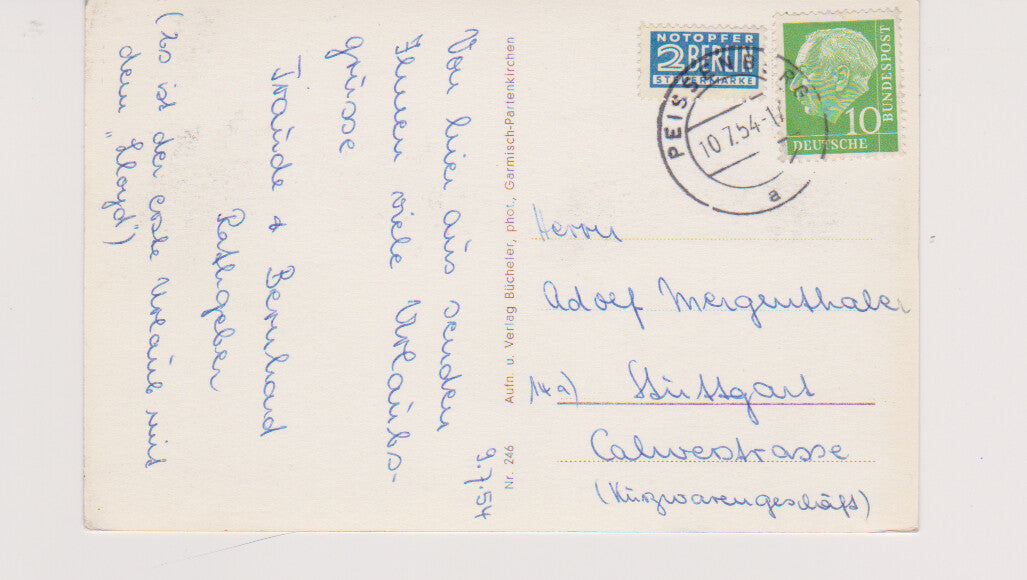 9.7.54
Von hier aus senden
Ihnen viele Urlaubs-
grüsse
Traude & Bernhard
Rathgeber
(es ist der erste Urlaub mit
dem "Lloyd")
Nr. 246 Aufn. u. Verlag Bücheler, phot., Garmisch-Partenkirchen
NOTOPFER
2 BERLIN
STEUERMARKE
DEUTSCHE BUNDESPOST
10
PEISSENBERG
10.7.54-1
a
Herrn
Adolf Mergenthaler
(14a) Stuttgart
Calwerstrasse
(Kurzwarengeschäft)